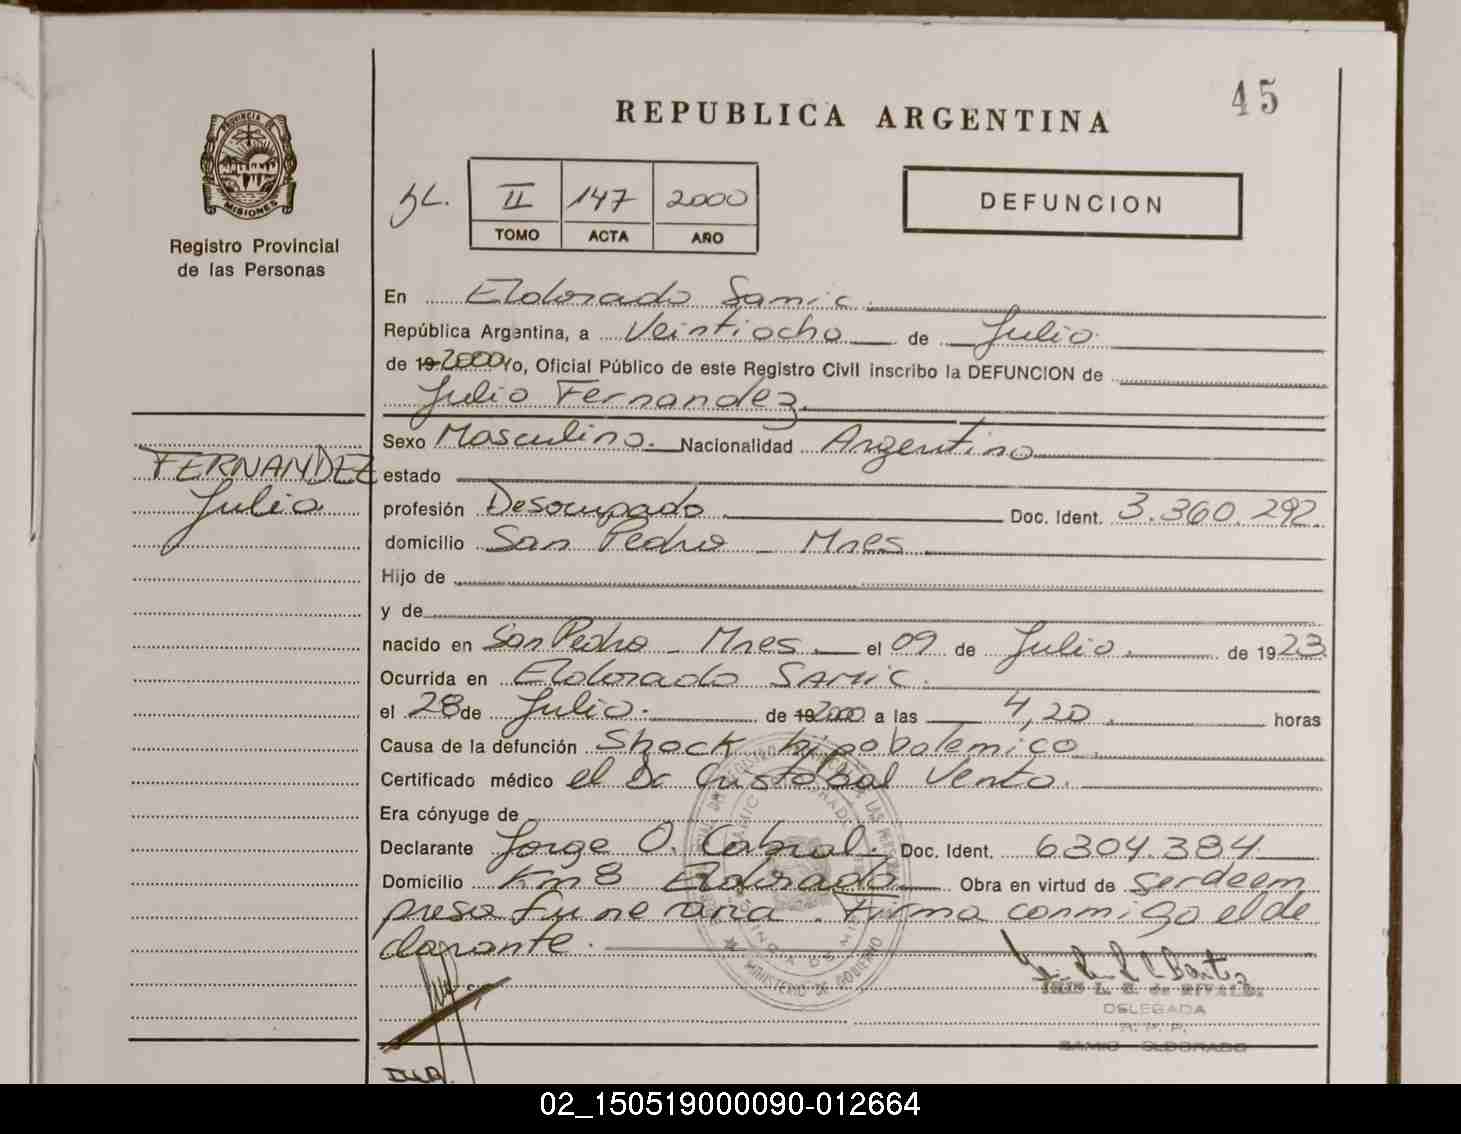 45
REPUBLICA ARGENTINA
PROVINCIA DE
MISIONES
Registro Provincial
de las Personas
II 147 2000
TOMO ACTA AÑO
DEFUNCION
En Eldorado Samic
República Argentina, a Veintiocho de Julio
de 19 2000 Yo, Oficial Público de este Registro Civil inscribo la DEFUNCION de
Julio Fernandez
FERNANDEZ
Julio
Sexo Masculino. Nacionalidad Argentino
estado
profesión Desocupado Doc. Ident. 3.360.292
domicilio San Pedro - Mnes
Hijo de
y de
nacido en San Pedro - Mnes el 09 de Julio de 1923
Ocurrida en Eldorado SAMIC.
el 28 de Julio. de 19 2000 a las 4,20 horas
Causa de la defunción Shock hipobolemico
Certificado médico el Dr Cristobal Vento.
Era cónyuge de
Declarante Jorge O. Cabral. Doc. Ident. 6304.384
Domicilio Km 8 Eldorado Obra en virtud de Ser de em
presa funeraria. Firma conmigo el de
clarante.
MINISTERIO DE GOBIERNO
DELEGADA
R. P. P.
SAMIC ELDORADO
02_150519000090-012664